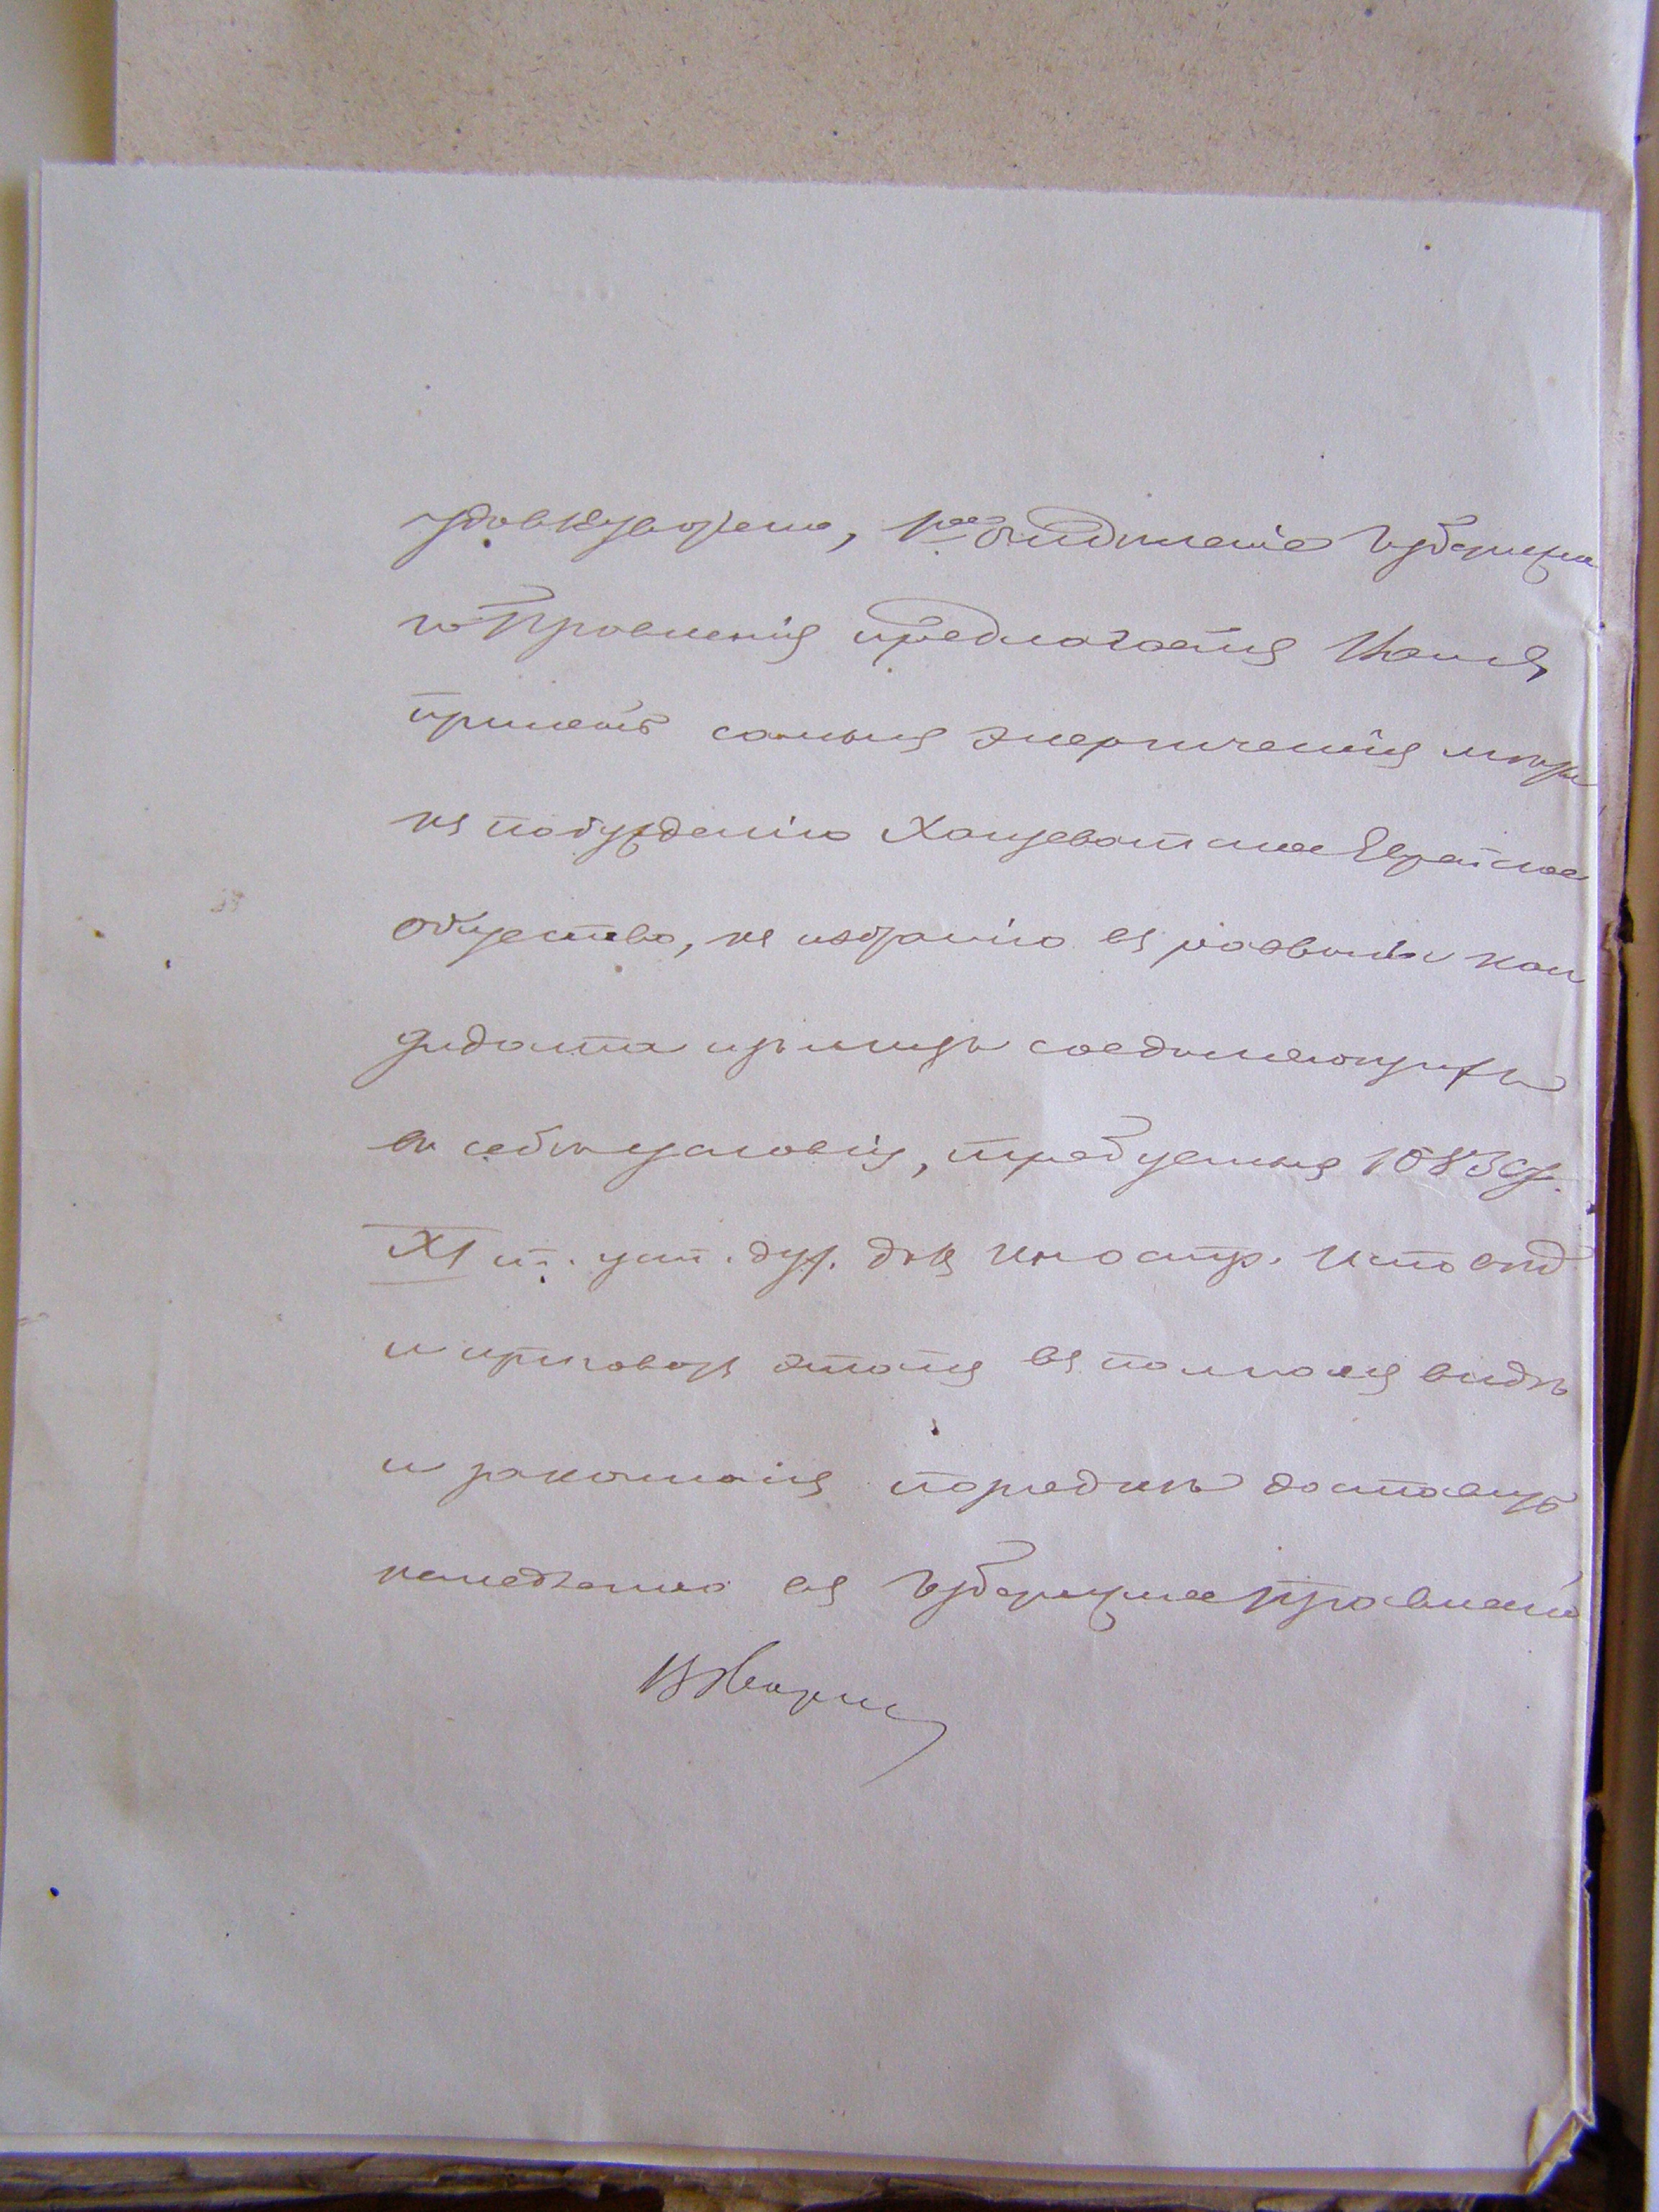 удовлетворено, 1ое отделеніе Губернска
го Правленія предлагаетъ Полиціи
принять самыя энергическія мѣры
къ побужденію Хащеватское Еврейское
общество, къ избранію въ раввины кан
дидата изъ лицъ соединяющихъ
въ себѣ условія, требуемыя 1083 ст.
XI т. уст. дух. дѣлъ иностр. испов
и приговоръ этотъ въ полномъ видѣ
и законномъ порядкѣ доставить
немедленно въ Губернское Правленіе